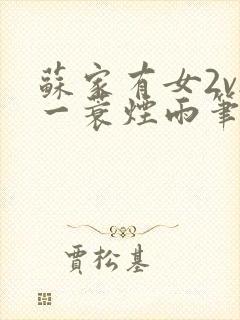 蘇家有女2v
一蓑煙雨筆
賈松基